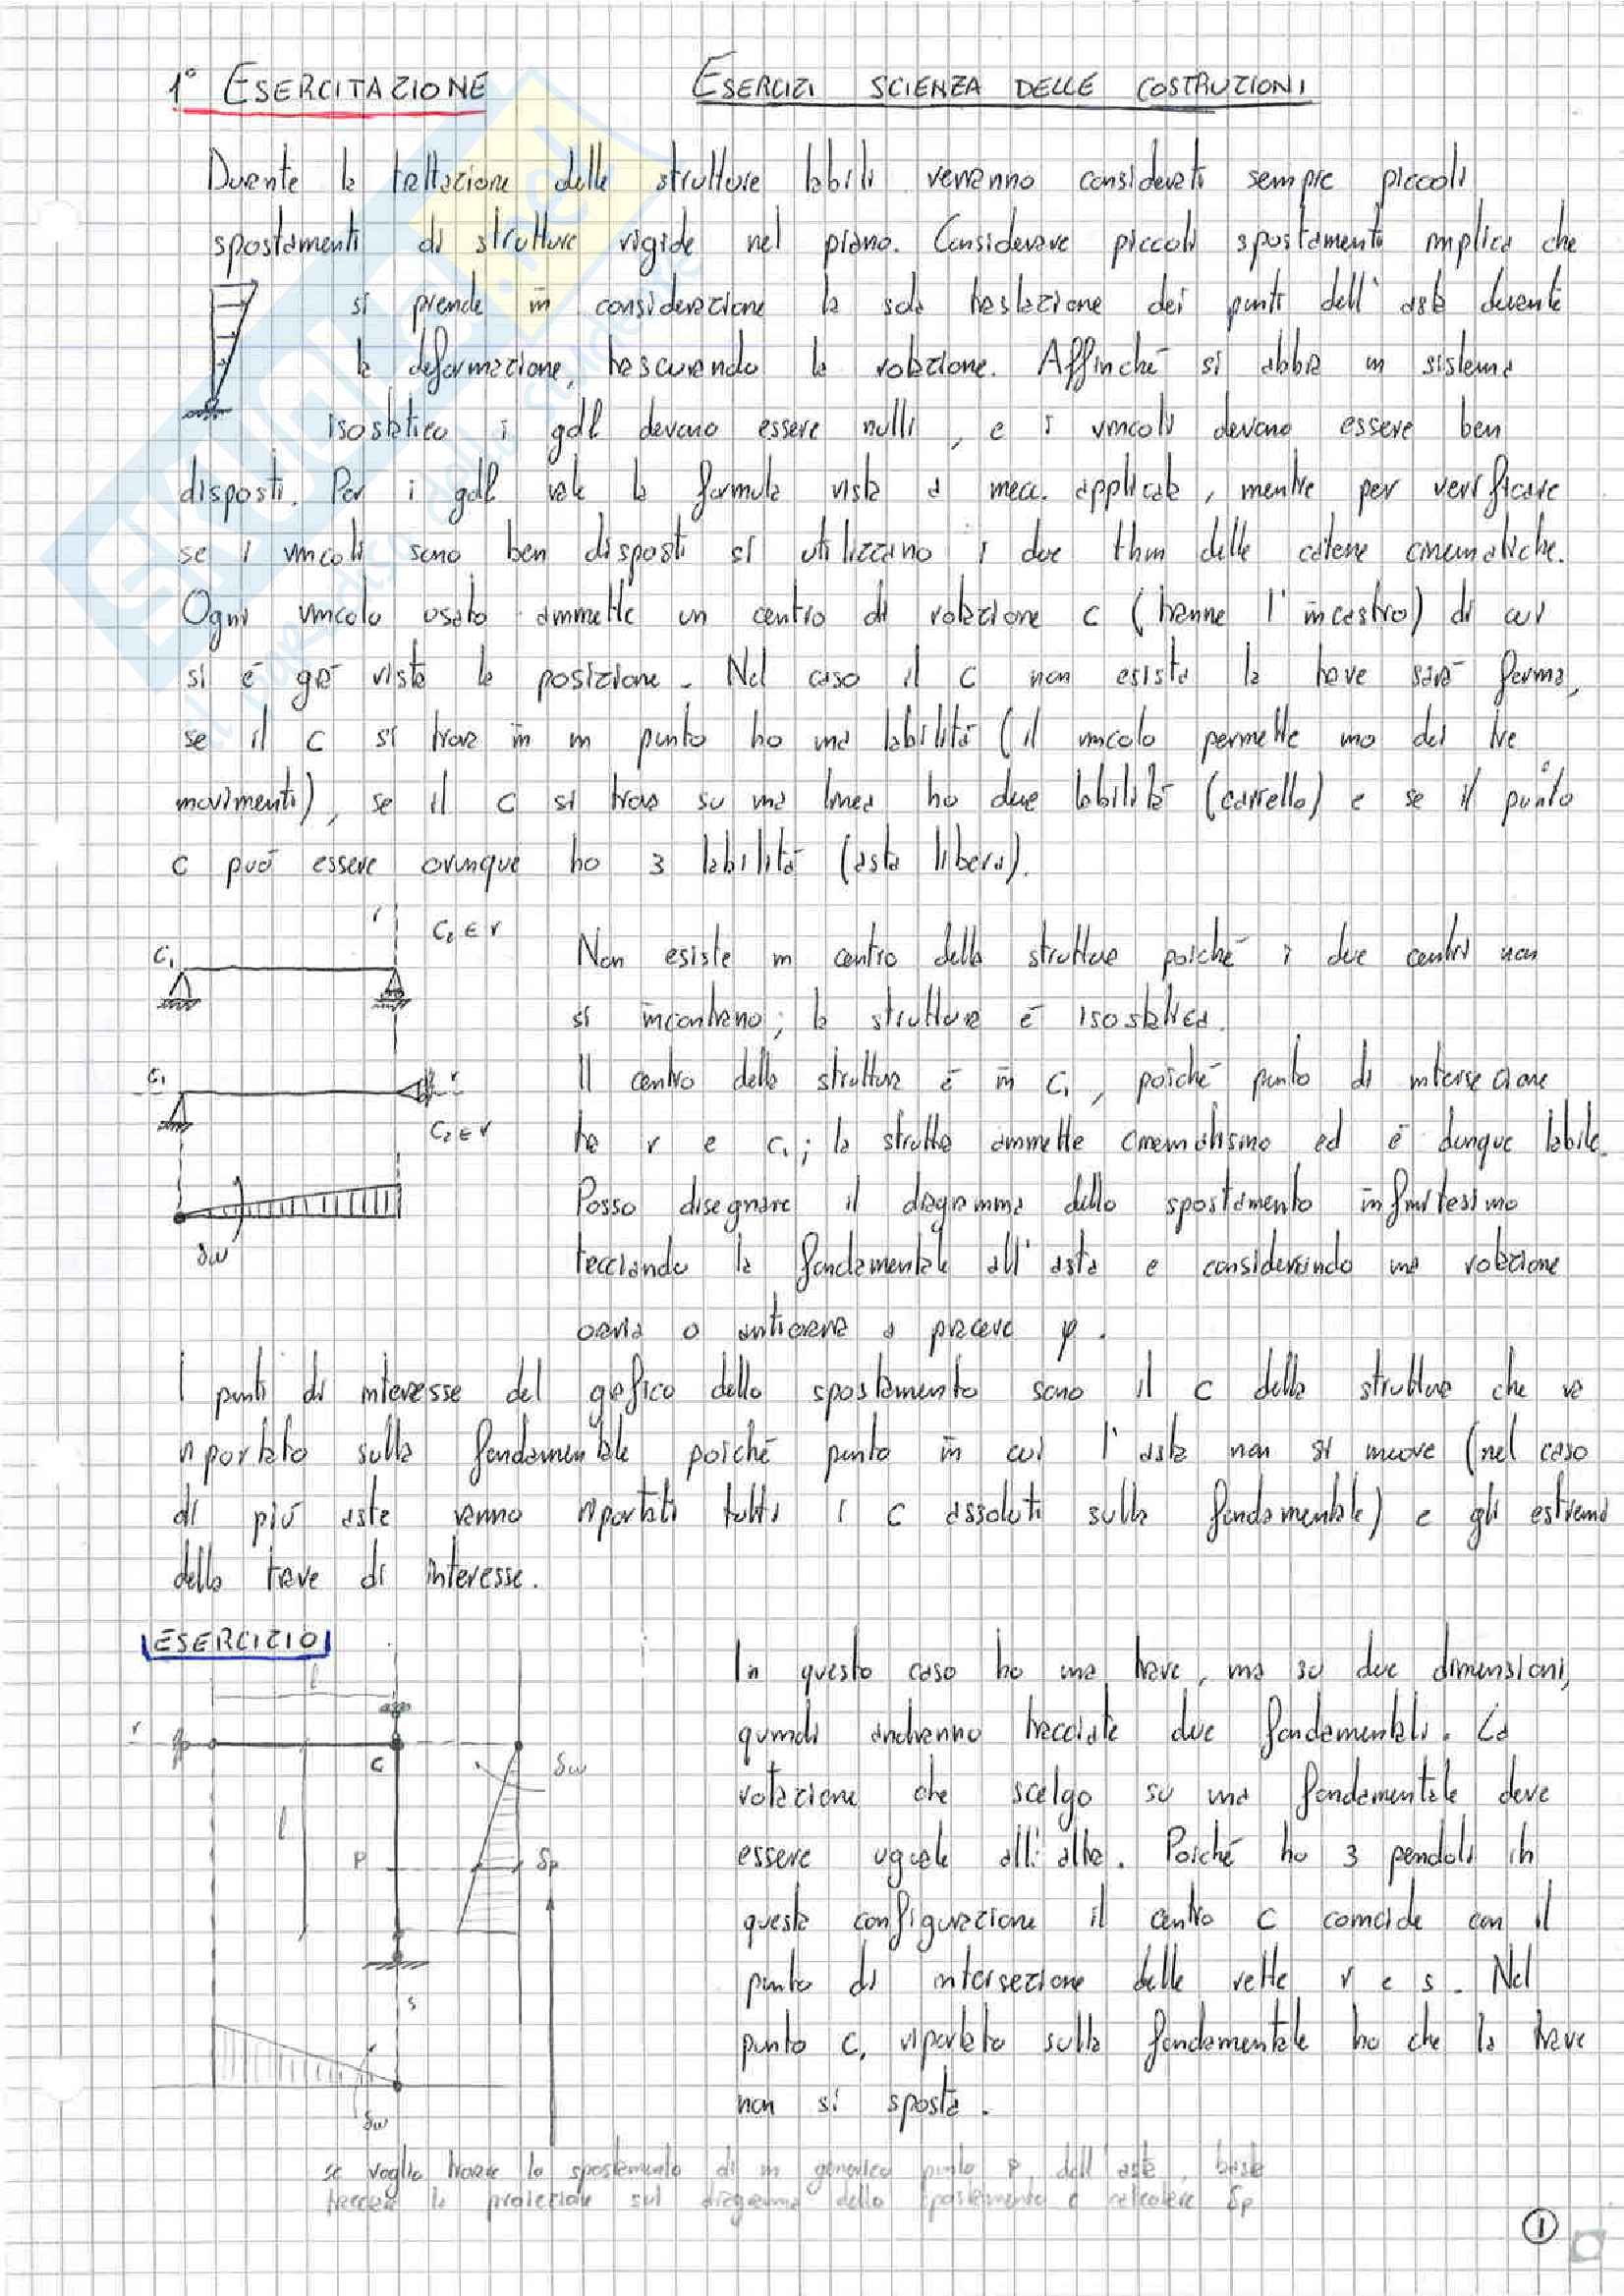 1° ESERCITAZIONE ESERCIZI SCIENZA DELLE COSTRUZIONI
Durante la trattazione delle strutture labili verranno considerati sempre piccoli
spostamenti di strutture rigide nel piano. Considerare piccoli spostamenti implica che
si prende in considerazione la sola traslazione dei punti dell'asta durante
la deformazione, trascurando la rotazione. Affinché si abbia un sistema
isostatico i gdl devono essere nulli, e i vincoli devono essere ben
disposti. Per i gdl vale la formula vista a mecc. applicata, mentre per verificare
se i vincoli sono ben disposti si utilizzano i due thm delle catene cinematiche.
Ogni vincolo usato ammette un centro di rotazione C (tranne l'incastro) di cui
si è già vista la posizione. Nel caso il C non esista la trave sarà ferma,
se il C si trova in un punto ho una labilità (il vincolo permette uno dei tre
movimenti), se il C si trova su una linea ho due labilità (carrello) e se il punto
C può essere ovunque ho 3 labilità (asta libera).
C₁ r C₂ ∈ r
Non esiste un centro della struttura poiché i due centri non
si incontrano; la struttura è isostatica.
C₁ r
Il centro della struttura è in C₁, poiché punto di intersezione
C₂ ∈ r
tra r e C₁; la strutta ammette cinematismo ed è dunque labile.
Posso disegnare il diagramma dello spostamento infinitesimo
δω
tracciando la fondamentale all'asta e considerando una rotazione
oraria o antioraria a piacere φ.
I punti di interesse del grafico dello spostamento sono il C della struttura che va
riportato sulla fondamentale poiché punto in cui l'asta non si muove (nel caso
di più aste vanno riportati tutti i C assoluti sulla fondamentale) e gli estremi
della trave di interesse.
ESERCIZIO
In questo caso ho una trave, ma su due dimensioni,
l
quindi andranno tracciate due fondamentali. La
r
C
δω
rotazione che scelgo su una fondamentale deve
l
P
δp
essere uguale all'altra. Poiché ho 3 pendoli in
questa configurazione il centro C coincide con il
punto di intersezione delle rette r e s. Nel
s
punto C, riportato sulla fondamentale ho che la trave
non si sposta.
δω
se voglio trovare lo spostamento di un generico punto P dell'asta, basta
tracciare la proiezione sul diagramma dello spostamento e calcolare δp
1